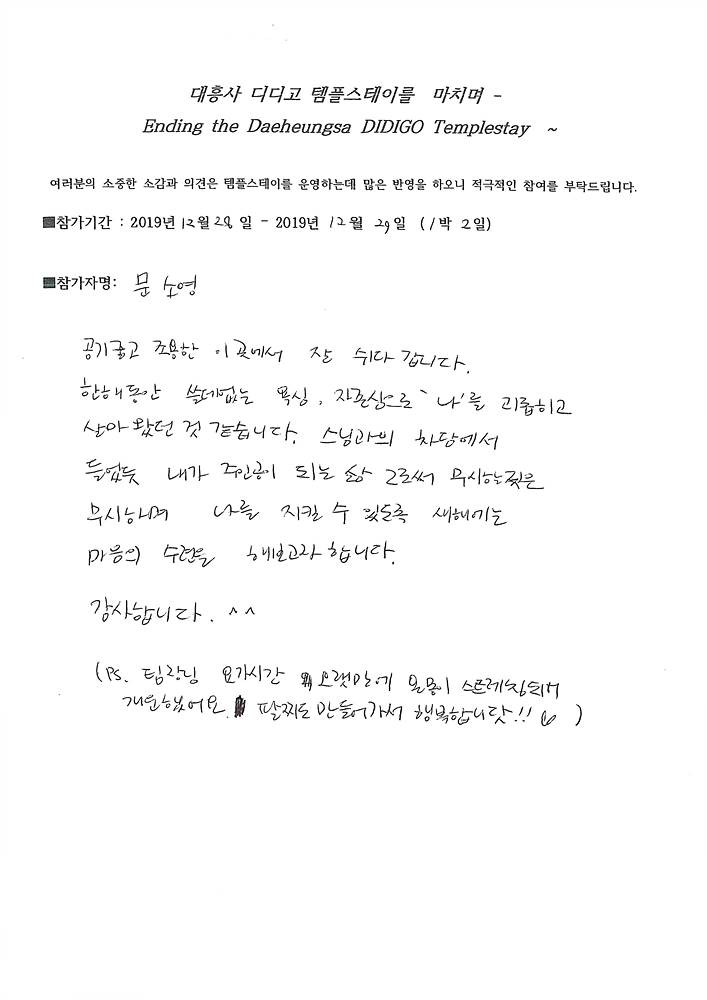 대흥사 디디고 템플스테이를 마치며 -
Ending the Daeheungsa DIDIGO Templestay ~
여러분의 소중한 소감과 의견은 템플스테이를 운영하는데 많은 반영을 하오니 적극적인 참여를 부탁드립니다.
■참가기간 : 2019년 12월 28일 - 2019년 12월 29일 (1박 2일)
■참가자명: 문소영
공기좋고 조용한 이곳에서 잘 쉬다 갑니다.
한해동안 쓸데없는 욕심, 자존심으로 '나'를 괴롭히고
살아 왔던 것 같습니다. 스님과의 차담에서
들었듯 내가 주인공이 되는 삶 그로써 무시하는것은
무시하며 나를 지킬 수 있도록 새해에는
마음의 수련을 해보고자 합니다.
감사합니다. ^^
(Ps. 팀장님 요가시간 오랫만에 온몸이 스트레칭되어
개운했어요. 팔찌도 만들어가서 행복합니닷!! )